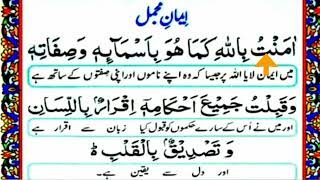 ایمانِ مجمل
اٰمَنْتُ بِاللّٰهِ كَمَا هُوَ بِاَسْمَآئِهٖ وَصِفَاتِهٖ
میں ایمان لایا اللہ پر جیسا کہ وہ اپنے ناموں اور اپنی صفتوں کے ساتھ ہے
وَقَبِلْتُ جَمِيْعَ اَحْكَامِهٖ اِقْرَارٌۢ بِاللِّسَانِ
اور میں نے اُس کے سارے حکموں کو قبول کیا زبان سے اقرار ہے
وَتَصْدِيْقٌۢ بِالْقَلْبِ ؕ
اور دل سے یقین ہے۔